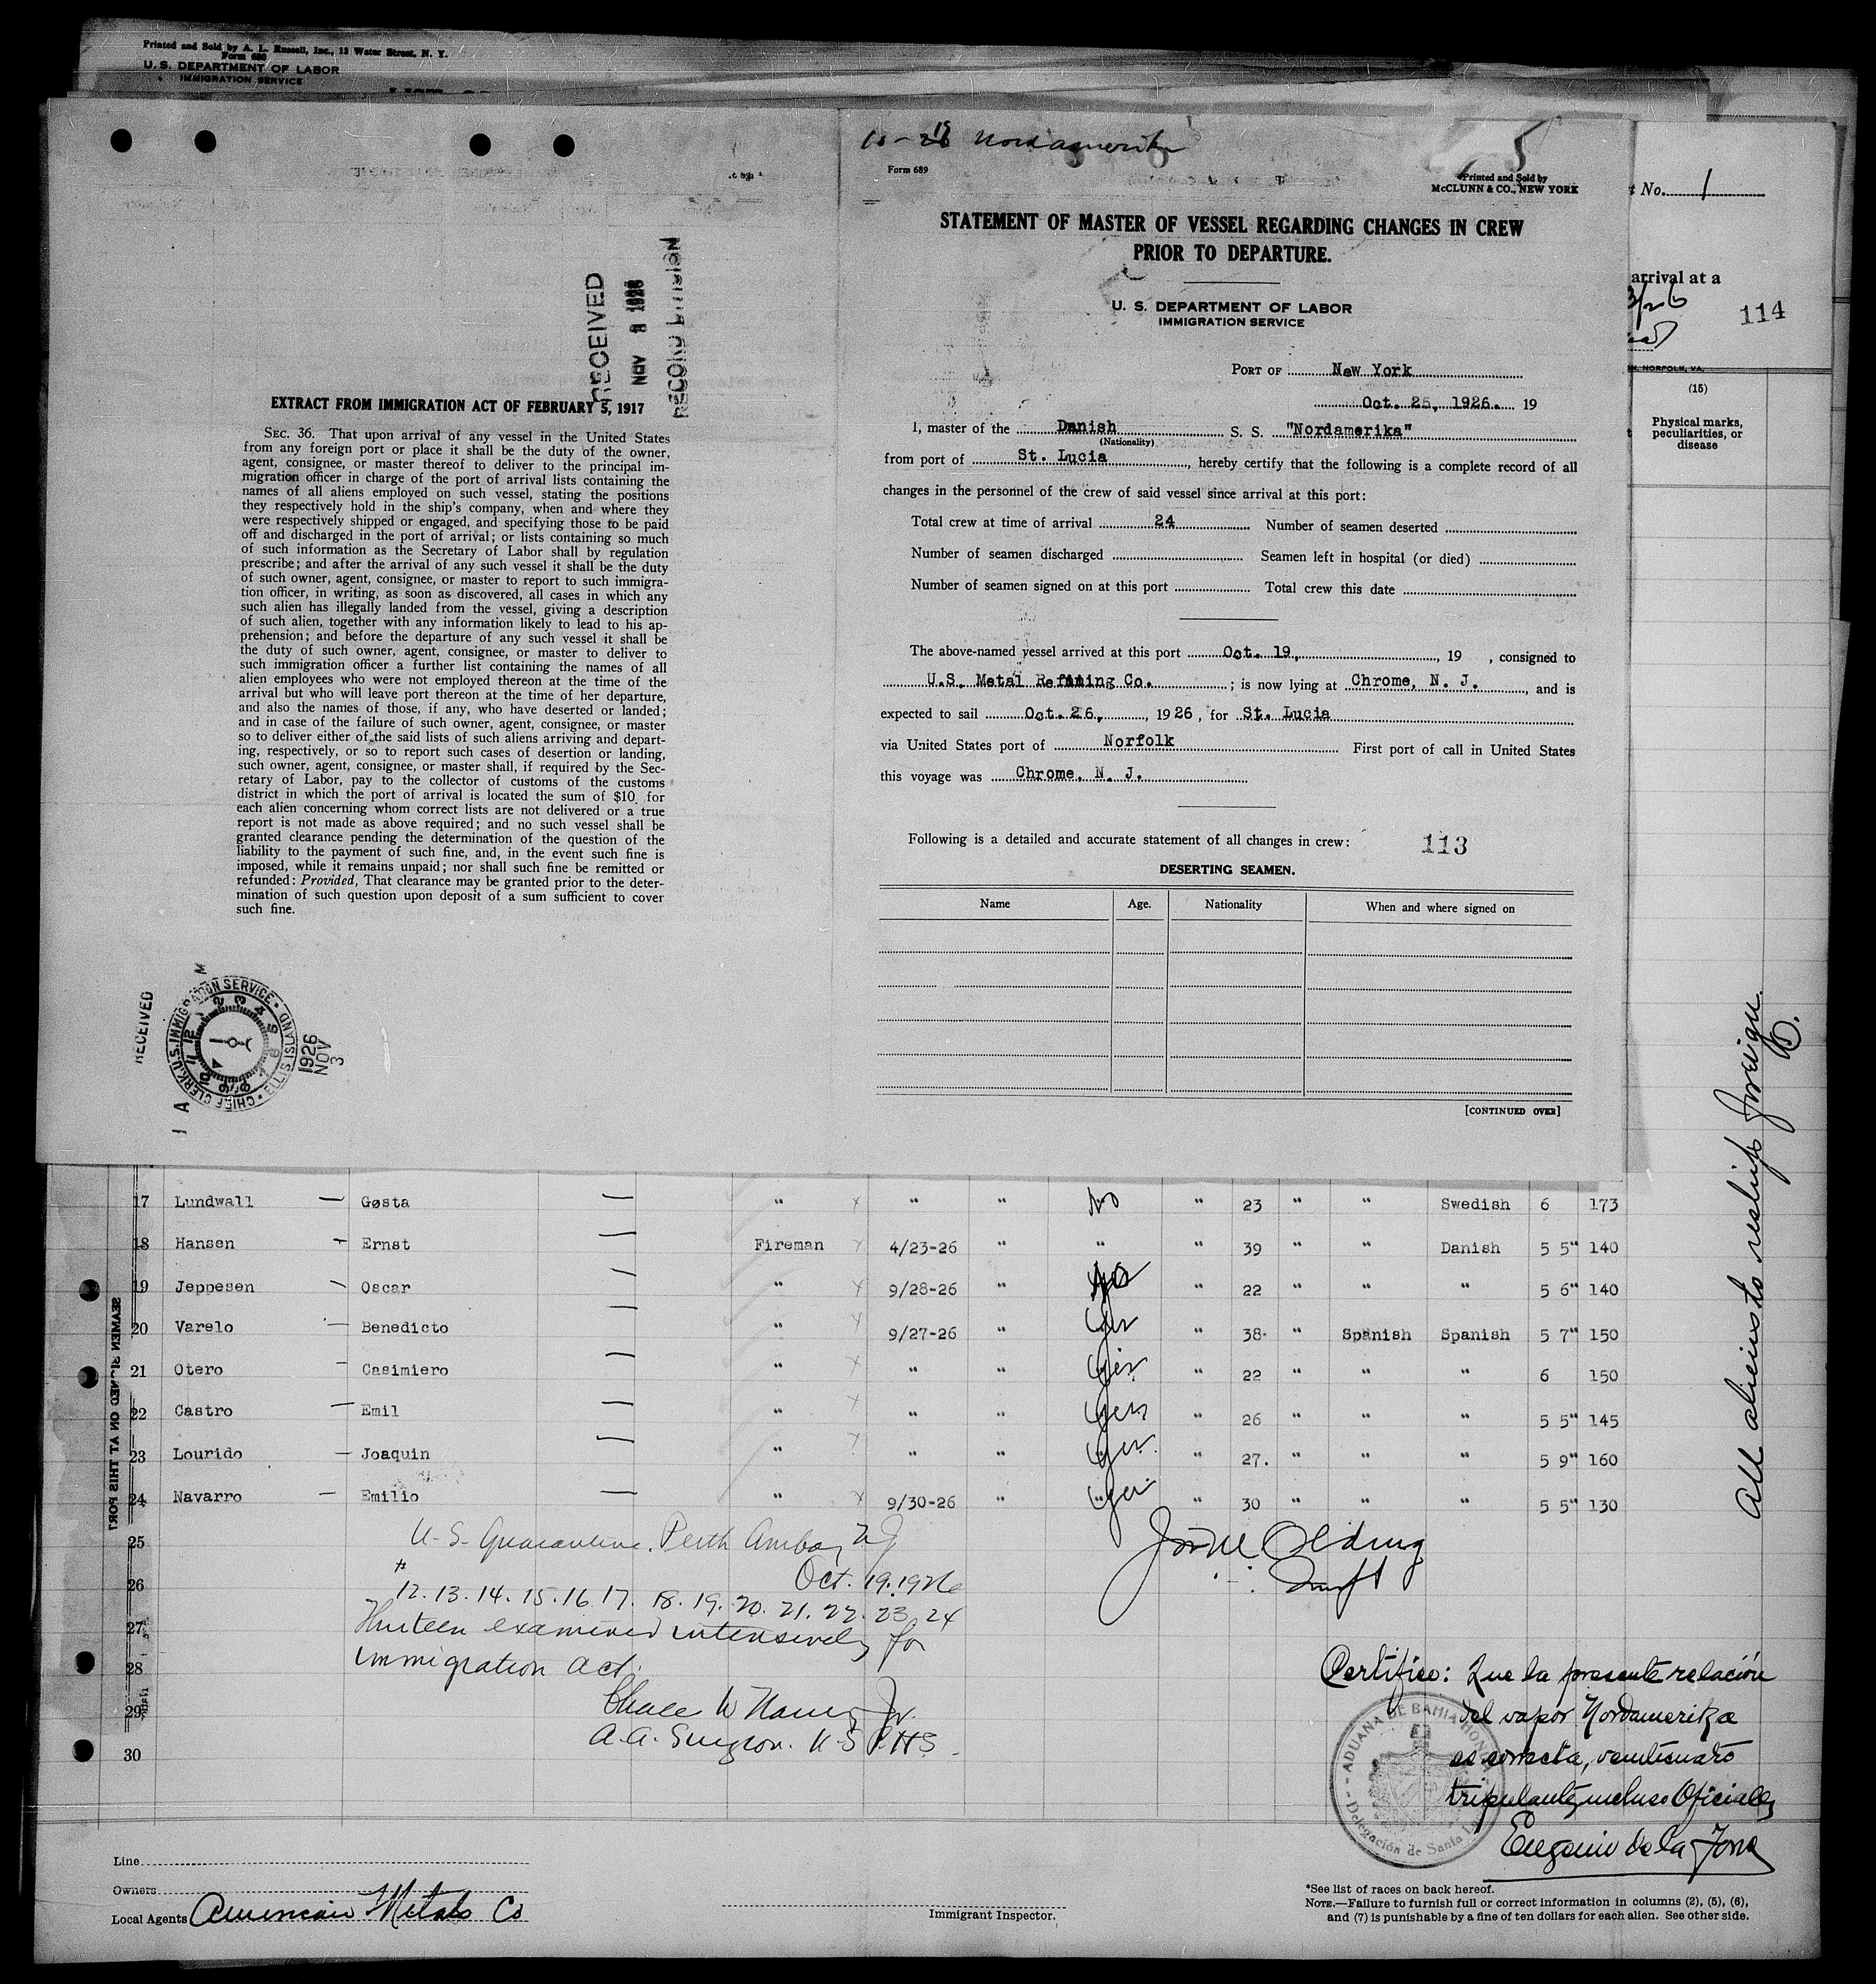 Printed and Sold by A. L. Russell, Inc., 13 Water Street, N. Y.
Form 680
U. S. DEPARTMENT OF LABOR
IMMIGRATION SERVICE
RECEIVED
NOV 8 1926
RECORD DIVISION
EXTRACT FROM IMMIGRATION ACT OF FEBRUARY 5, 1917
SEC. 36. That upon arrival of any vessel in the United States
from any foreign port or place it shall be the duty of the owner,
agent, consignee, or master thereof to deliver to the principal im-
migration officer in charge of the port of arrival lists containing the
names of all aliens employed on such vessel, stating the positions
they respectively hold in the ship's company, when and where they
were respectively shipped or engaged, and specifying those to be paid
off and discharged in the port of arrival; or lists containing so much
of such information as the Secretary of Labor shall by regulation
prescribe; and after the arrival of any such vessel it shall be the duty
of such owner, agent, consignee, or master to report to such immigra-
tion officer, in writing, as soon as discovered, all cases in which any
such alien has illegally landed from the vessel, giving a description
of such alien, together with any information likely to lead to his ap-
prehension; and before the departure of any such vessel it shall be
the duty of such owner, agent, consignee, or master to deliver to
such immigration officer a further list containing the names of all
alien employees who were not employed thereon at the time of the
arrival but who will leave port thereon at the time of her departure,
and also the names of those, if any, who have deserted or landed;
and in case of the failure of such owner, agent, consignee, or master
so to deliver either of the said lists of such aliens arriving and depart-
ing, respectively, or so to report such cases of desertion or landing,
such owner, agent, consignee, or master shall, if required by the Sec-
retary of Labor, pay to the collector of customs of the customs
district in which the port of arrival is located the sum of $10 for
each alien concerning whom correct lists are not delivered or a true
report is not made as above required; and no such vessel shall be
granted clearance pending the determination of the question of the
liability to the payment of such fine, and, in the event such fine is
imposed, while it remains unpaid; nor shall such fine be remitted or
refunded: Provided, That clearance may be granted prior to the deter-
mination of such question upon deposit of a sum sufficient to cover
such fine.
RECEIVED
CHIEF CLERK U.S. IMMIGRATION SERVICE · ELLIS ISLAND
1926
NOV
3
Nordamerika
5
Form 689
Printed and Sold by
McCLUNN & CO., NEW YORK
STATEMENT OF MASTER OF VESSEL REGARDING CHANGES IN CREW
PRIOR TO DEPARTURE.
U. S. DEPARTMENT OF LABOR
IMMIGRATION SERVICE
PORT OF New York
Oct. 25, 1926. 19
I, master of the Danish S. S. "Nordamerika"
(Nationality)
from port of St. Lucia, hereby certify that the following is a complete record of all
changes in the personnel of the crew of said vessel since arrival at this port:
Total crew at time of arrival 24 Number of seamen deserted
Number of seamen discharged Seamen left in hospital (or died)
Number of seamen signed on at this port Total crew this date
The above-named vessel arrived at this port Oct. 19, , 19 , consigned to
U.S. Metal Refining Co. ; is now lying at Chrome, N. J. , and is
expected to sail Oct. 26, , 1926, for St. Lucia
via United States port of Norfolk First port of call in United States
this voyage was Chrome, N. J.
Following is a detailed and accurate statement of all changes in crew: 113
DESERTING SEAMEN.
Name Age. Nationality When and where signed on
[CONTINUED OVER]
No. 1
arrival at a
114
NORFOLK, VA.
(15)
Physical marks,
peculiarities, or
disease
All aliens to reship foreign.
17 Lundwall — Gøsta — " " " No " 23 " " Swedish 6 173
18 Hansen — Ernst — Fireman 4/23-26 " " " 39 " " Danish 5 5" 140
19 Jeppesen — Oscar — " 9/28-26 " No " 22 " " " 5 6" 140
20 Varelo — Benedicto — " 9/27-26 " Yes " 38 " Spanish Spanish 5 7" 150
21 Otero — Casimiero — " " " Yes " 22 " " " 6 150
22 Castro — Emil — " " " Yes " 26 " " " 5 5" 145
23 Lourido — Joaquin — " " " Yes " 27. " " " 5 9" 160
24 Navarro — Emilio — " 9/30-26 " Yes " 30 " " " 5 5" 130
25
26
27
28
29
30
SEAMEN SIGNED ON AT THIS PORT
U.S. Quarantine, Perth Amboy NJ
Oct. 19. 1926
# 12. 13. 14. 15. 16. 17. 18. 19. 20. 21. 22. 23 24
Thirteen examined intensively for
immigration act.
A.A. Surgeon. U S P.H.S.
Certifico: Que la presente relación
del vapor Nordamerika
es correcta, veinticuatro
tripulantes incluso Oficiales
Eugenio de la
ADUANA DE BAHIA HONDA
Delegación de Santa Lucia
Line
Owners
Local Agents American Metals Co
Immigrant Inspector.
*See list of races on back hereof.
NOTE.—Failure to furnish full or correct information in columns (2), (5), (6),
and (7) is punishable by a fine of ten dollars for each alien. See other side.